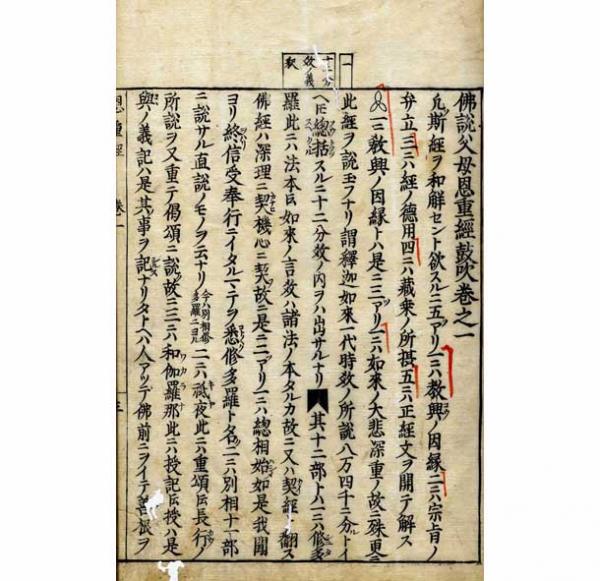 一
十二分
教ノ義
釈
佛説父母恩重經鼓吹卷之一
凢斯經ヲ和解セント欲スルニ五アリ一ニハ教興ノ因縁二ニハ宗旨ノ
弁立三ニハ經ノ德用四ニハ藏乗ノ所摂五ニハ正經文ヲ開テ解ス
一ニ教興ノ因縁トハ是ニ二アリ一ニハ如來ノ大悲深重ノ故ニ殊更ニ
此經ヲ説玉フナリ謂釋迦如來一代時教ノ所説八万四千ニ分ルトイ
ヘ𪜈總括スルニ十二分教ノ内ヲハ出サルナリ 其十二部トハ一ニハ修多
羅此ニハ法本ト云如來ノ言教ハ諸法ノ本タルカ故ニ又ハ契經ト翻ス
佛經ハ深理ニ契機心ニ契故ニ是ニ二アリ一ニハ總相始如是我聞
ヨリ終信受奉行ニイタルマテヲ悉修多羅ト名二ニハ別相十二部
ニ説サル直説ノモノヲ云ナリ今ハ別相修多羅ニヨル二ニハ祇夜此ニハ重頌ト云長行ノ
所説ヲ又重テ偈頌ニ説故ニ三ニハ和伽羅那此ニハ授記ト云授ハ是
與ノ義記ハ是其事ヲ記ナリタトヘハ人アツテ佛前ニヲイテ善根ヲ
恩重經 卷一 三